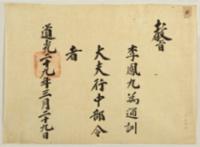 敎旨
李鳳九爲通訓
大夫行中部令
者
道光二十九年三月二十九日